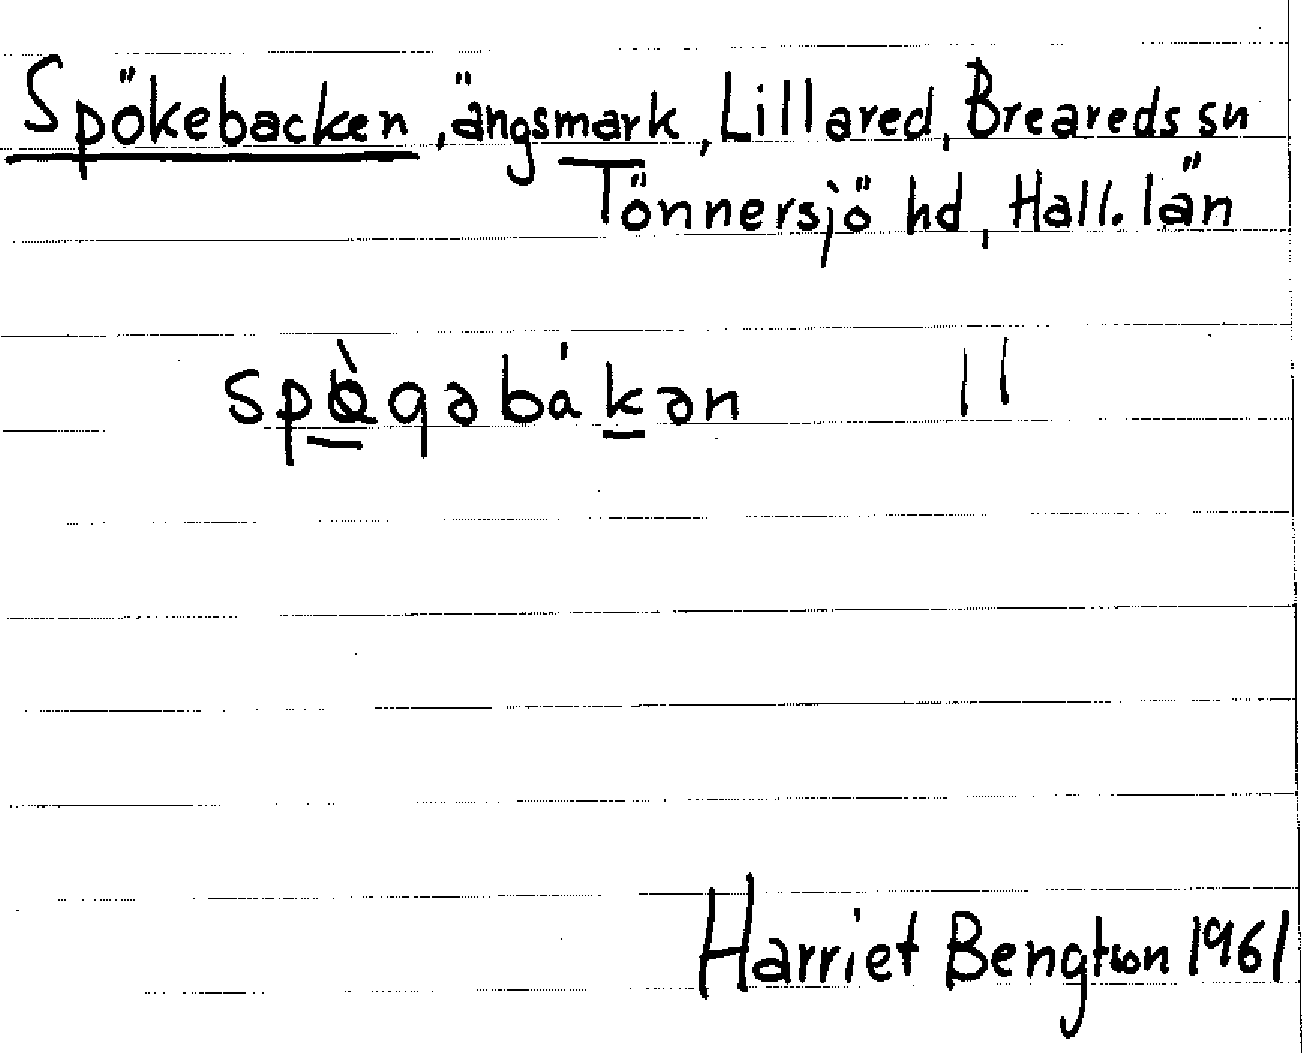 Spökebacken, ängsmark, Lillared, Breareds sn
Tönnersjö hd, Hall. län
spø̀gəbákən ||
Harriet Bengtson 1961